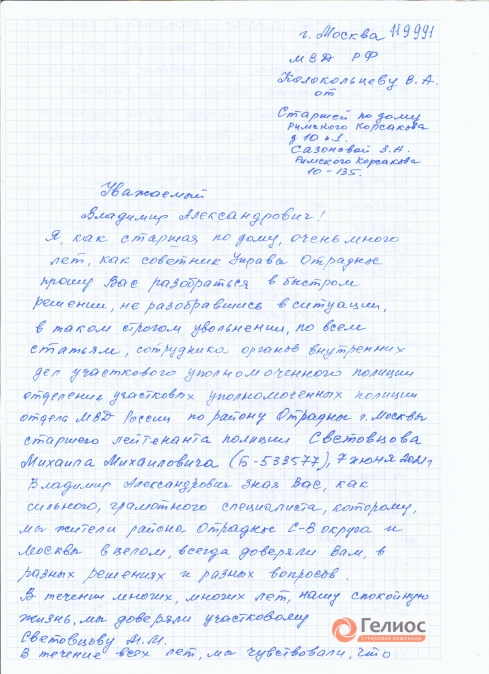 г. Москва 119991
МВД РФ
Колокольцеву В. А.
от
Старшей по дому
Римского Корсакова
д 10 к 1.
Сазоновой З. Н.
Римского Корсакова
10-135.
Уважаемый
Владимир Александрович!
Я, как старшая по дому, очень много
лет, как советник Управы Отрадное
прошу Вас разобраться в быстром
решении, не разобравшись в ситуации,
в таком строгом увольнении, по всем
статьям, сотрудника органов внутренних
дел участкового уполномоченного полиции
отделение участковых уполномоченных полиции
отдела МВД России по району Отрадное г. Москвы
старшего лейтенанта полиции Световцова
Михаила Михаиловича (Б-533577), 7 июня 2021г
Владимир Александрович зная Вас, как
сильного, грамотного специалиста, которому,
мы жители района Отрадное С-В округа и
Москвы в целом, всегда доверяли Вам, в
разных решениях и разных вопросов.
В течении многих, многих лет, нашу спокойную
жизнь, мы доверяли участковому
Световцову М. М.
В течение всех лет, мы чувствовали, что
Гелиос
СТРАХОВАЯ КОМПАНИЯ